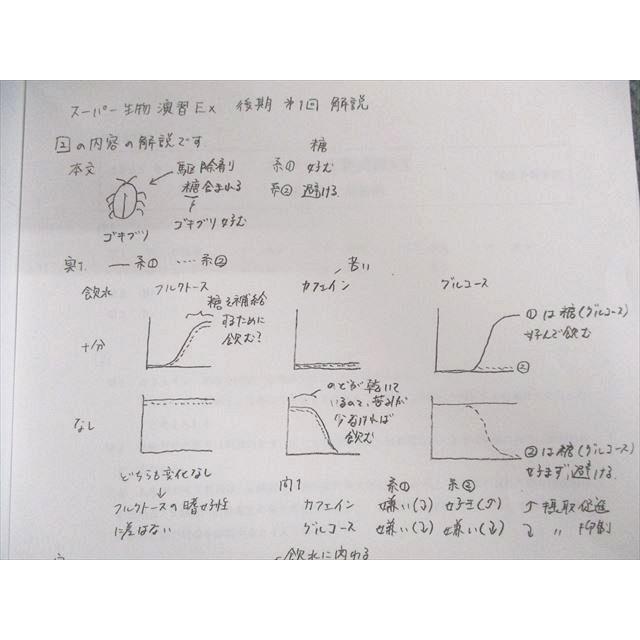 スーパー生物演習Ex 後期 第1回 解説
2の内容の解説です
糖
本文
駆除剤
系① 好む
糖含まれる
系② 避ける
ゴキブリ好む
ゴキブリ
実1. — 系① ‥‥ 系②
苦い
飲水 フルクトース カフェイン グルコース
糖を補給
するために
飲む?
十分
①は糖(グルコース)
好んで飲む
②
のどが乾いて
いるので、苦みが
少なければ
飲む
なし
②は糖(グルコース)
好まず、避ける
どちらも変化なし
↓
フルクトースの嗜好性
に差はない
問1 系① 系②
カフェイン 嫌い(↓) 嫌い(↓)
グルコース 好き(↑) 嫌い(↓)
↑ 摂取促進
↓ 〃 抑制
飲水に関わる